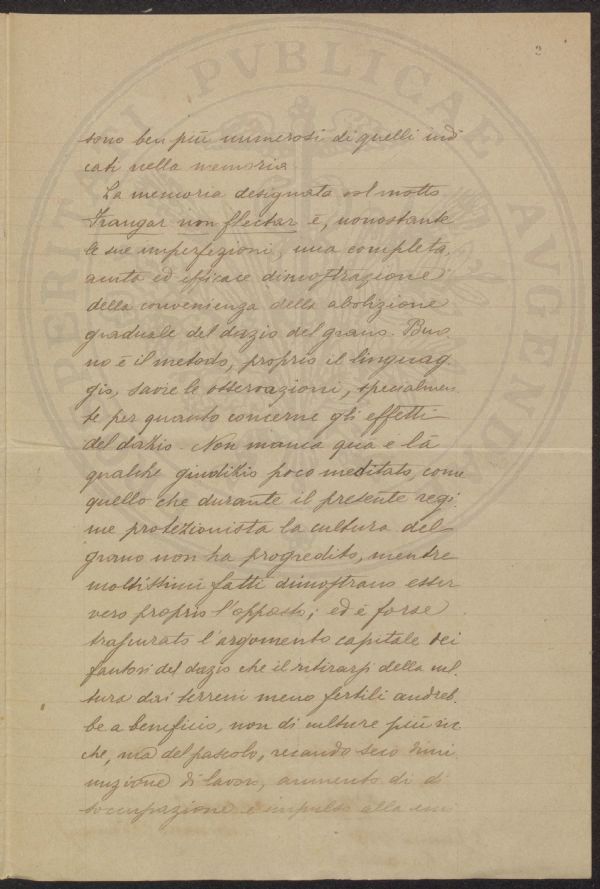 2
sono ben più numerosi di quelli indi
cati nella memoria
La memoria designata col motto
Frangar non flectar è, nonostante
le sue imperfezioni, una completa,
acuta ed efficace dimostrazione
della convenienza della abolizione
graduale del dazio del grano. Buo
no è il metodo, proprio il linguag
gio, savie le osservazioni, specialmen
te per quanto concerne gli effetti
del dazio. Non manca qua e là
qualche giudizio poco meditato, come
quello che durante il presente regi
me protezionista la cultura del
grano non ha progredito, mentre
moltissimi fatti dimostrano esser
vero proprio l'opposto; ed è forse
trascurato l'argomento capitale dei
fautori del dazio che il ritirarsi della cul
tura dai terreni meno fertili andreb
be a beneficio, non di culture più ric
che, ma del pascolo, recando seco dimi
nuzione di lavoro, aumento di di
soccupazione e impulso alla emi
PERITAT PVBLICAE AVGENDA